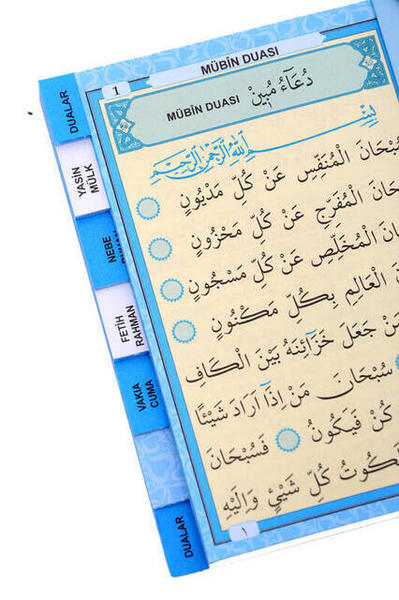 MÜBİN DUASI
1
MÜBİN DUASI دُعَاءُ مُبِينْ
بِسْــمِ اللّٰهِ الرَّحْمٰنِ الرَّحِيمِ
سُبْحَانَ الْمُنَفِّسِ عَنْ كُلِّ مَدْيُونٍ
الْمُفَرِّجِ عَنْ كُلِّ مَحْزُونٍ
الْمُخَلِّصِ عَنْ كُلِّ مَسْجُونٍ
الْعَالِمِ بِكُلِّ مَكْنُونٍ
مَنْ جَعَلَ خَزَٓائِنَهُ بَيْنَ الْكَافِ
سُبْحَانَ مَنْ اِذَٓا اَرَادَ شَيْئًا
كُنْ فَيَكُونُ فَسُبْحَانَ
مَلَكُوتُ كُلِّ شَيْئٍ وَاِلَيْهِ
١
DUALAR
YASİN
MÜLK
NEBE
FETİH
RAHMAN
VAKIA
CUMA
DUALAR